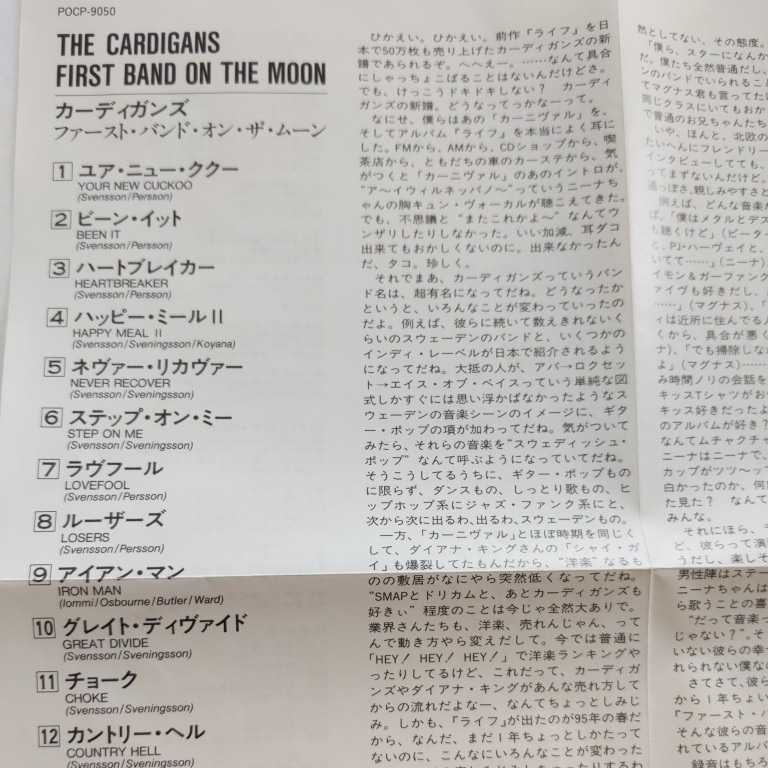 POCP-9050
THE CARDIGANS
FIRST BAND ON THE MOON
カーディガンズ
ファースト・バンド・オン・ザ・ムーン
1 ユア・ニュー・ククー
YOUR NEW CUCKOO
(Svensson/Persson)
2 ビーン・イット
BEEN IT
(Svensson/Persson)
3 ハートブレイカー
HEARTBREAKER
(Svensson/Persson)
4 ハッピー・ミールⅡ
HAPPY MEAL II
(Svensson/Sveningsson/Koyana)
5 ネヴァー・リカヴァー
NEVER RECOVER
(Svensson/Sveningsson)
6 ステップ・オン・ミー
STEP ON ME
(Svensson/Sveningsson)
7 ラヴフール
LOVEFOOL
(Svensson/Persson)
8 ルーザーズ
LOSERS
(Svensson/Persson)
9 アイアン・マン
IRON MAN
(Iommi/Osbourne/Butler/Ward)
10 グレイト・ディヴァイド
GREAT DIVIDE
(Svensson/Sveningsson)
11 チョーク
CHOKE
(Svensson/Sveningsson)
12 カントリー・ヘル
COUNTRY HELL
(Svensson/Sveningsson)
ひかえい。ひかえい。前作『ライフ』を日
本で50万枚も売り上げたカーディガンズの新
譜であられるぞ。へへえー。……なんて具合
にしゃっちょこばることはないんだけどさ。
でも、けっこうドキドキしない? カーディ
ガンズの新譜。どうなってっかなーって。
なにせ、僕らはあの「カーニヴァル」を、
そしてアルバム『ライフ』を本当によく耳に
した。FMから、AMから、CDショップから、喫
茶店から、ともだちの車のカーステから、気
がつくと「カーニヴァル」のあのイントロが、
"ア〜イウィルネッバノ〜"っていうニーナち
ゃんの胸キュン・ヴォーカルが聴こえてきた。
でも、不思議と"またこれかよ〜"なんてウ
ンザリしたりしなかった。いい加減、耳ダコ
出来てもおかしくないのに。出来なかったん
だ、タコ。珍しく。
それでまあ、カーディガンズっていうバン
ド名は、超有名になってだね。どうなったか
というと、いろんなことが変わっていったの
だよ。例えば、彼らに続いて数えきれないく
らいのスウェーデンのバンドと、いくつかの
インディ・レーベルが日本で紹介されるよう
になってだね。大抵の人が、アバ→ロクセッ
ト→エイス・オブ・ベイスっていう単純な図
式しかすぐには思い浮かばなかったようなス
ウェーデンの音楽シーンのイメージに、ギタ
ー・ポップの項が加わってだね。気がついて
みたら、それらの音楽を"スウェディッシュ・
ポップ"なんて呼ぶようになっていてだね。
そうこうしてるうちに、ギター・ポップもの
に限らず、ダンスもの、しっとり歌もの、ヒ
ップホップ系にジャズ・ファンク系にと、
次から次に出るわ、出るわ、スウェーデンもの。
一方、「カーニヴァル」とほぼ時期を同じく
して、ダイアナ・キングさんの「シャイ・ガ
イ」も爆裂してたもんだから、"洋楽"なるも
のの敷居がなにやら突然低くなってだね。
"SMAPとドリカムと、あとカーディガンズも
好きぃ"程度のことは今じゃ全然大ありで。
業界さんたちも、洋楽、売れんじゃん、って
んで動き方やら変えだして。今では普通に
「HEY! HEY! HEY!」で洋楽ランキングや
ったりしてるけど、これだって、カーディガ
ンズやダイアナ・キングがあんな売れ方して
からの流れだよなー、なんてちょっとしみじ
み。しかも、『ライフ』が出たのが95年の春だ
から、なんだ、まだ1年ちょっとしかたって
ないのに、こんなにいろんなことが変わった
然としてない、その態度。
「僕ら、スターになんか
だ。僕たち全然普通だし、
ンのバンドでいられること
てマグナス君も言ってたけ
同じクラスにいてもおか
で普通のお兄ちゃんたち
いや、ほんと、北欧の
たいへんにフレンドリー
インタビューしてても、
ってまずないんだけど。
通っぽさ、親しみやすさと
例えば、どんな音楽が
ば、「僕はメタルとデス
も聴くけど」(ピーター
と、PJ・ハーヴェイと、
いてて……」(ニーナ)
イモン&ガーファンク
ァイヴも好きだし、
……」(マグナス)、「
ィは近所に住んでる人
くから、具合が悪く
ナ)、「でも掃除しな
よ」(マグナス)……
み時間ノリの会話を
キッスTシャツがお
キッス好きだったよ
のアルバムが好き?
なんてムチャクチャ
ニーナはニーナで、
カップがツツ〜ッて
白かったのか、何
た見た? なんて
みんな。
それにほら、
ど、彼らって演
うだし、楽しそ
男性陣はステー
ニーナちゃんは
ら歌うことの喜
"だって音楽っ
じゃない?"。そ
いない彼らの幸せ
れられない僕なの
さてさて、彼ら
から1年ちょい
『ファースト・バ
そんな彼らの音
れているアルバ
録音はもちろ